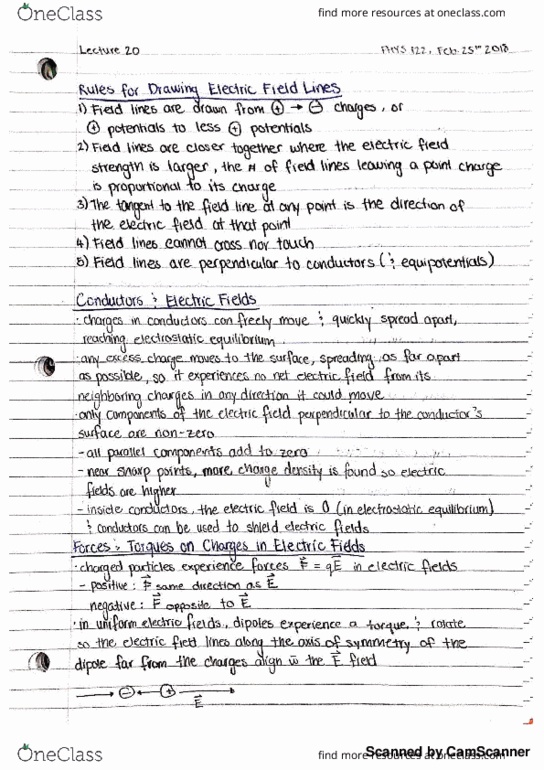 OneClass
find more resources at oneclass.com
Lecture 20
PHYS 122, Feb. 25th 2018
Rules for Drawing Electric Field Lines
1) Field lines are drawn from ⊕ → ⊖ charges, or
⊕ potentials to less ⊕ potentials
2) Field lines are closer together where the electric field
strength is larger, the # of field lines leaving a point charge
is proportional to its charge
3) The tangent to the field line at any point is the direction of
the electric field at that point
4) Field lines cannot cross nor touch
5) Field lines are perpendicular to conductors (& equipotentials)
Conductors & Electric Fields
· charges in conductors can freely move & quickly spread apart,
reaching electrostatic equilibrium
· any excess charge moves to the surface, spreading as far apart
as possible, so it experiences no net electric field from its
neighboring charges in any direction it could move
· only components of the electric field perpendicular to the conductor's
surface are non-zero
- all parallel components add to zero
- near sharp points, more charge density is found so electric
fields are higher
- inside conductors, the electric field is 0 (in electrostatic equilibrium)
& conductors can be used to shield electric fields
Forces & Torques on Charges in Electric Fields
· charged particles experience forces F⃗ = qE⃗ in electric fields
- positive: F⃗ same direction as E⃗
negative: F⃗ opposite to E⃗
· in uniform electric fields, dipoles experience a torque, & rotate
so the electric field lines along the axis of symmetry of the
dipole far from the charges align w̄ the E⃗ field
⊖ ⊕
E⃗
OneClass
find more resources at oneclass.com
Scanned by CamScanner